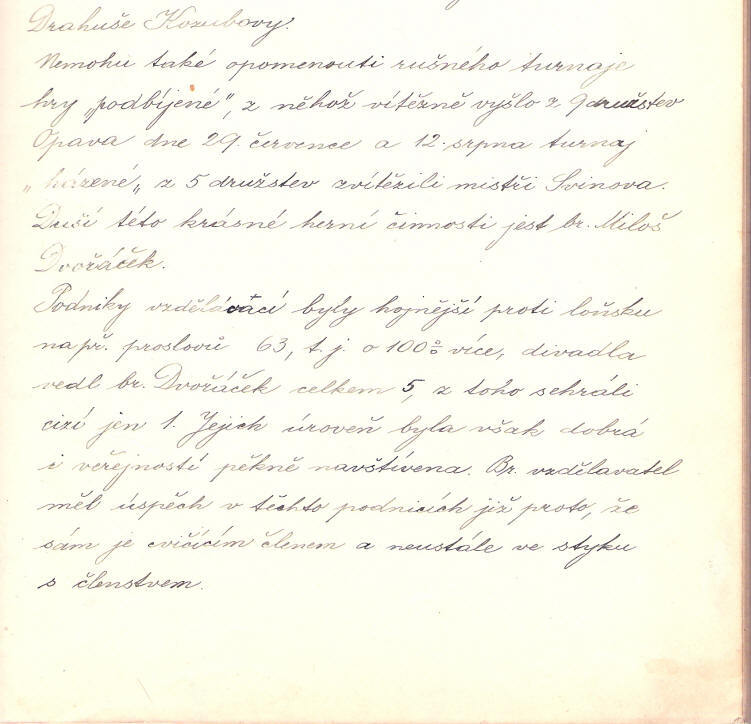 Drahuše Kozubovy.
Nemohu také opomenouti rušného turnaje
hry „podbíjené", z něhož vítězně vyšlo z 9 družstev
Opava dne 29. července a 12. srpna turnaj
„házené„ z 5 družstev zvítězili mistři Svinova.
Duší této krásné herní činnosti jest br. Miloš
Dvořáček.
Podniky vzdělávací byly hojnější proti loňsku
např. proslovů 63, t.j. o 100% více, divadla
vedl br. Dvořáček celkem 5, z toho sehráli
cizí jen 1. Jejich úroveň byla však dobrá
i veřejností pěkně navštívena. Br. vzdělavatel
měl úspěch v těchto podnicích již proto, že
sám je cvičícím členem a neustále ve styku
s členstvem.